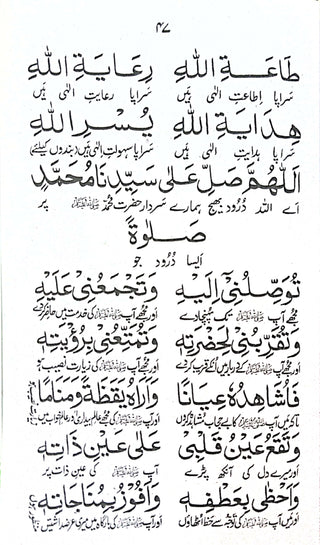 ۴۷
طَاعَةِ اللهِ رِعَايَةِ اللهِ
سَراپا اِطاعتِ الٰہی ہَیں سَراپا رعایتِ الٰہی ہَیں
هِدَايَةِ اللهِ يُسْرِ اللهِ
سَراپا ہدایتِ الٰہی ہَیں سَراپا سہولتِ الٰہی ہَیں (بندوں کیلئے)
اَللّٰهُمَّ صَلِّ عَلٰى سَيِّدِنَا مُحَمَّدٍ
اَے اللہ دُرُود بھیج ہمارے سردار حضرت مُحمّد ﷺ پر
صَلٰوةً
اَیسا دُرُود جو
تُوَصِّلُنِيْٓ اِلَيْهِ وَتَجْمَعُنِيْ عَلَيْهِ
مُجھے آپ ﷺ تک پہنچا دے اور مُجھے آپ ﷺ کی خدمت میں حاضر کر دے
وَتُقَرِّبُنِيْ لِحَضْرَتِهٖ وَتُمَتِّعُنِيْ بِرُؤْيَتِهٖ
اور مُجھے آپ ﷺ کے دربار میں قریب کر دے اور مُجھے آپ ﷺ کی زیارت نصیب
فَاُشَاهِدُهٗ عِيَانًا وَاَرَاهُ يَقَظَةً وَّمَنَامًا
تاکہ میں آپ ﷺ کا بے حجاب مشاہدہ کروں اور آپ ﷺ کو عالمِ بیداری اور عالمِ خواب میں
وَتَقَعُ عَيْنُ قَلْبِيْ عَلٰى عَيْنِ ذَاتِهٖ
اور میرے دل کی آنکھ پڑے آپ ﷺ کی عین ذات پر
وَاَحْظٰى بِعَطْفِهٖ وَاَفُوْزُ بِمُنَاجَاتِهٖ
اور آپ ﷺ کی توجّہ سے حظ اُٹھاؤں اور آپ ﷺ کی بارگاہ میں